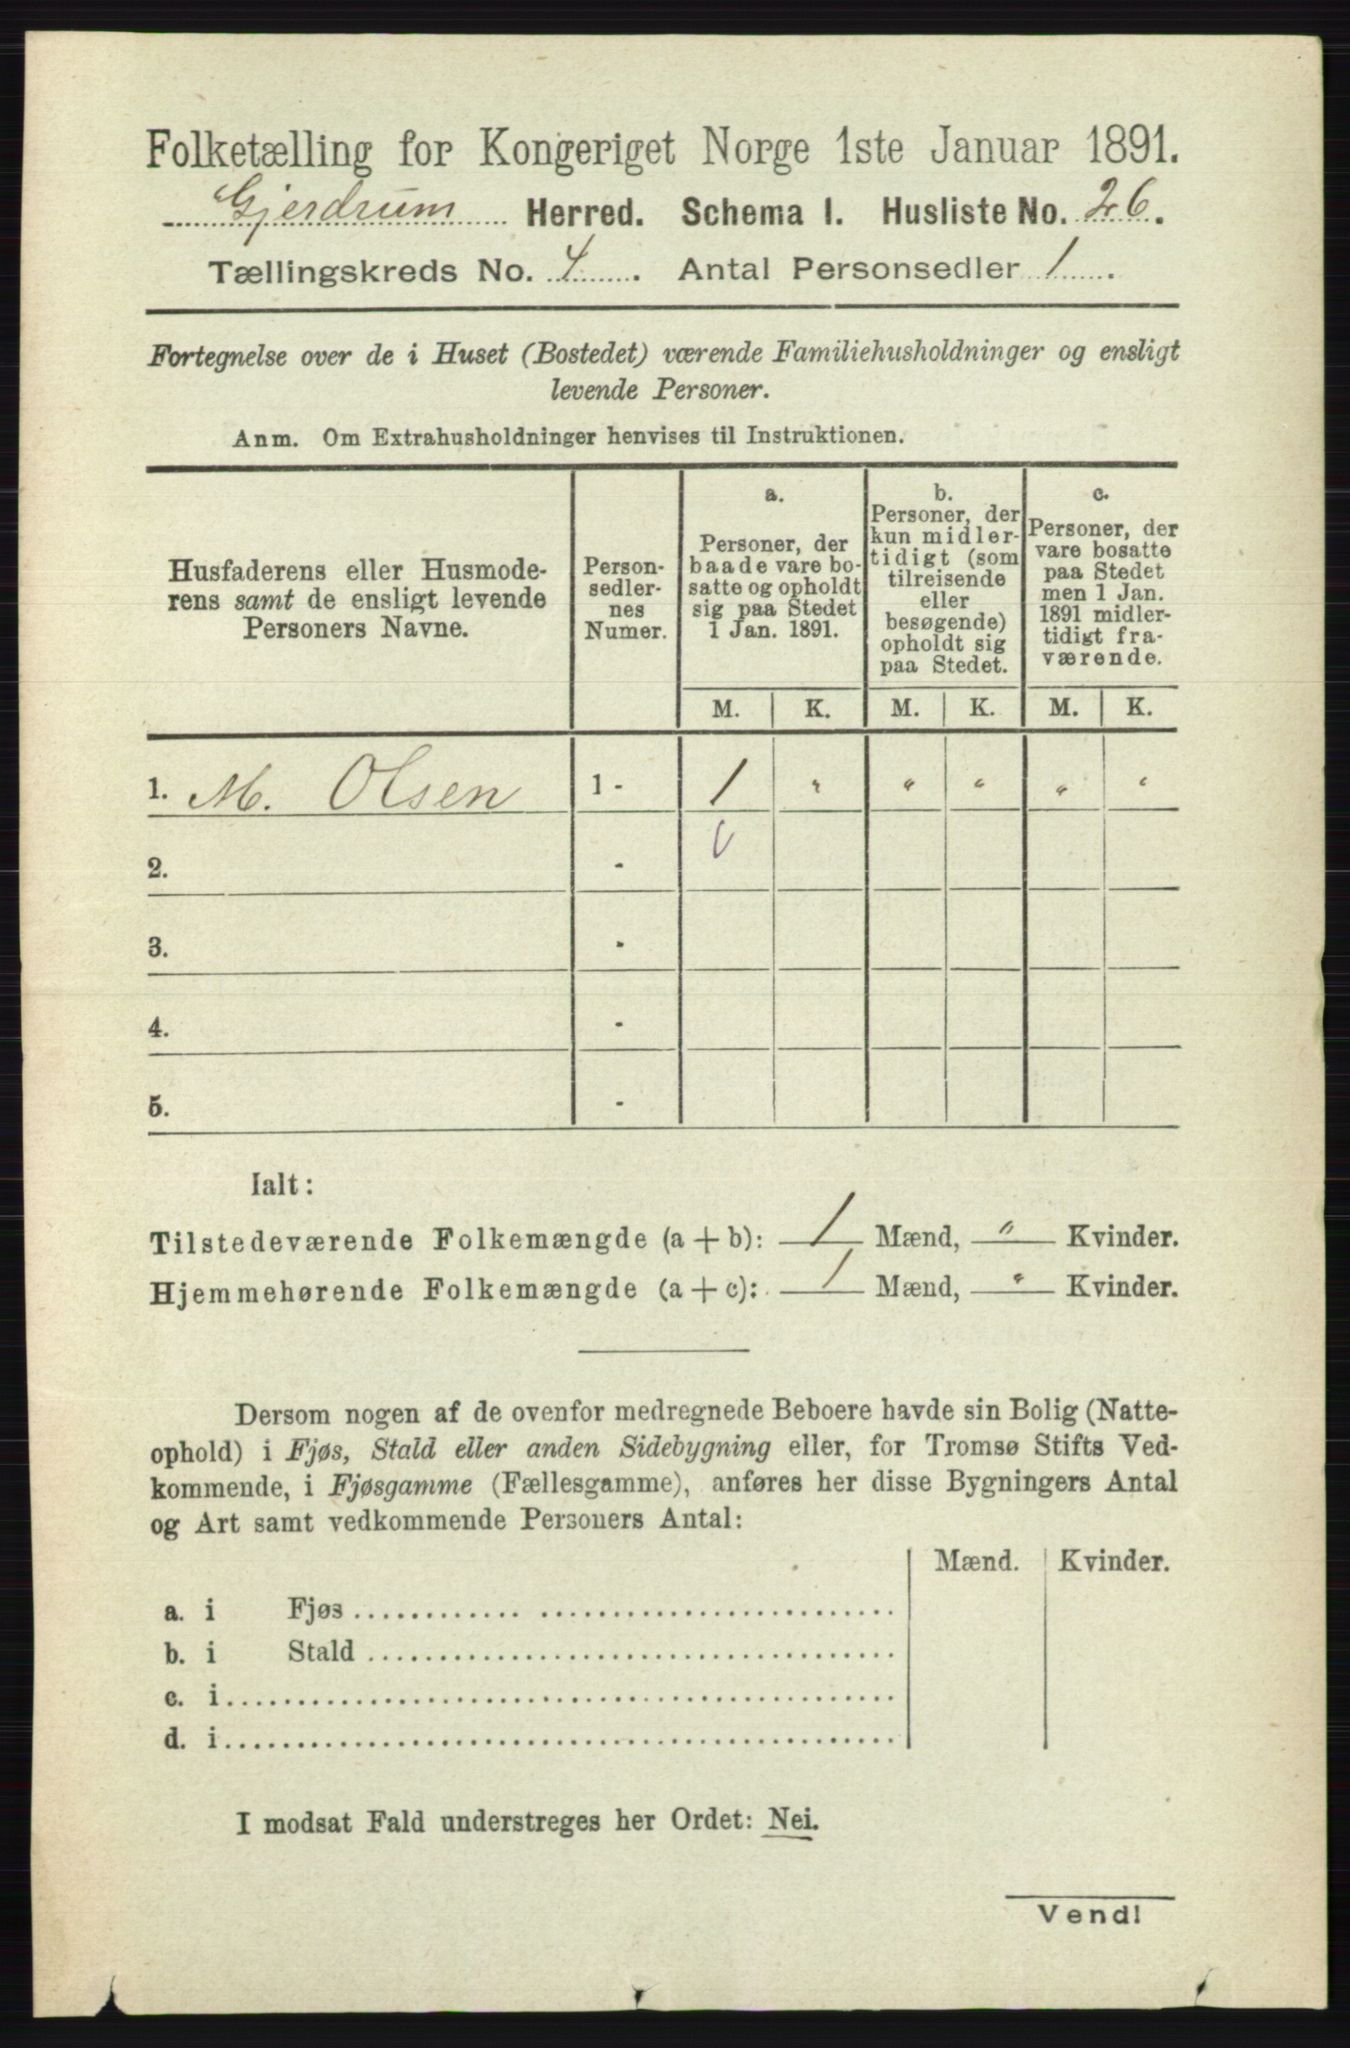 Folketælling for Kongeriget Norge 1ste Januar 1891.
Gjerdrum Herred. Schema I. Husliste No. 26.
Tællingskreds No. 4. Antal Personsedler 1.
Fortegnelse over de i Huset (Bostedet) værende Familiehusholdninger og ensligt
levende Personer.
Anm. Om Extrahusholdninger henvises til Instruktionen.
Husfaderens eller Husmode-
rens samt de ensligt levende
Personers Navne.
Person-
sedler-
nes
Numer.
a.
Personer, der
baade vare bo-
satte og opholdt
sig paa Stedet
1 Jan. 1891.
b.
Personer, der
kun midler-
tidigt (som
tilreisende
eller
besøgende)
opholdt sig
paa Stedet.
c.
Personer, der
vare bosatte
paa Stedet
men 1 Jan.
1891 midler-
tidigt fra-
værende.
M. K. M. K. M. K.
1. M. Olsen 1 - 1 " " " " "
2. -
3. -
4. -
5. -
Ialt:
Tilstedeværende Folkemængde (a + b): 1 Mænd, " Kvinder.
Hjemmehørende Folkemængde (a + c): 1 Mænd, " Kvinder.
Dersom nogen af de ovenfor medregnede Beboere havde sin Bolig (Natte-
ophold) i Fjøs, Stald eller anden Sidebygning eller, for Tromsø Stifts Ved-
kommende, i Fjøsgamme (Fællesgamme), anføres her disse Bygningers Antal
og Art samt vedkommende Personers Antal:
Mænd. Kvinder.
a. i Fjøs
b. i Stald
c. i
d. i
I modsat Fald understreges her Ordet: Nei.
Vend!